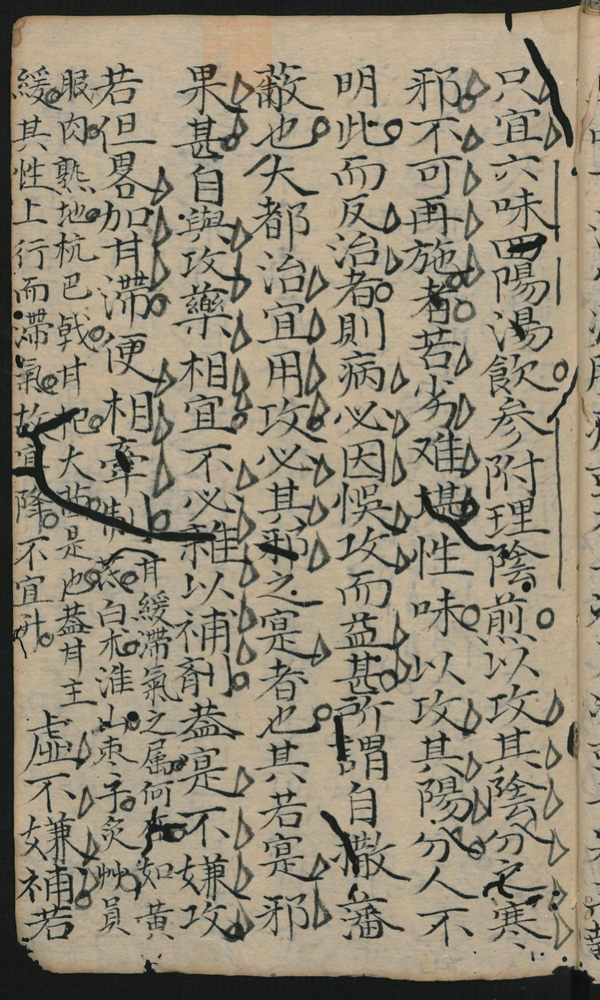 只宜六味四陽湯飲参附理陰煎以攻其陰分之寒
邪不可再施者若劣难堪性味以攻其陽分人不
明此而反治者則病必因悮攻而益甚所謂自撒藩
蔽也大都治宜用攻必其邪之寔者也其若寔邪
果甚自與攻藥相宜不必雜以補劑葢寔不嫌攻
若但畧加甘滞便相牽制
甘緩滞氣之属何在如黃
芪白朮淮山枣子炙艸員
服肉熟地杭巴戟甘杞大
是也葢甘主
緩其性上行而滞氣故宜降不宜升
虛不嫌補若